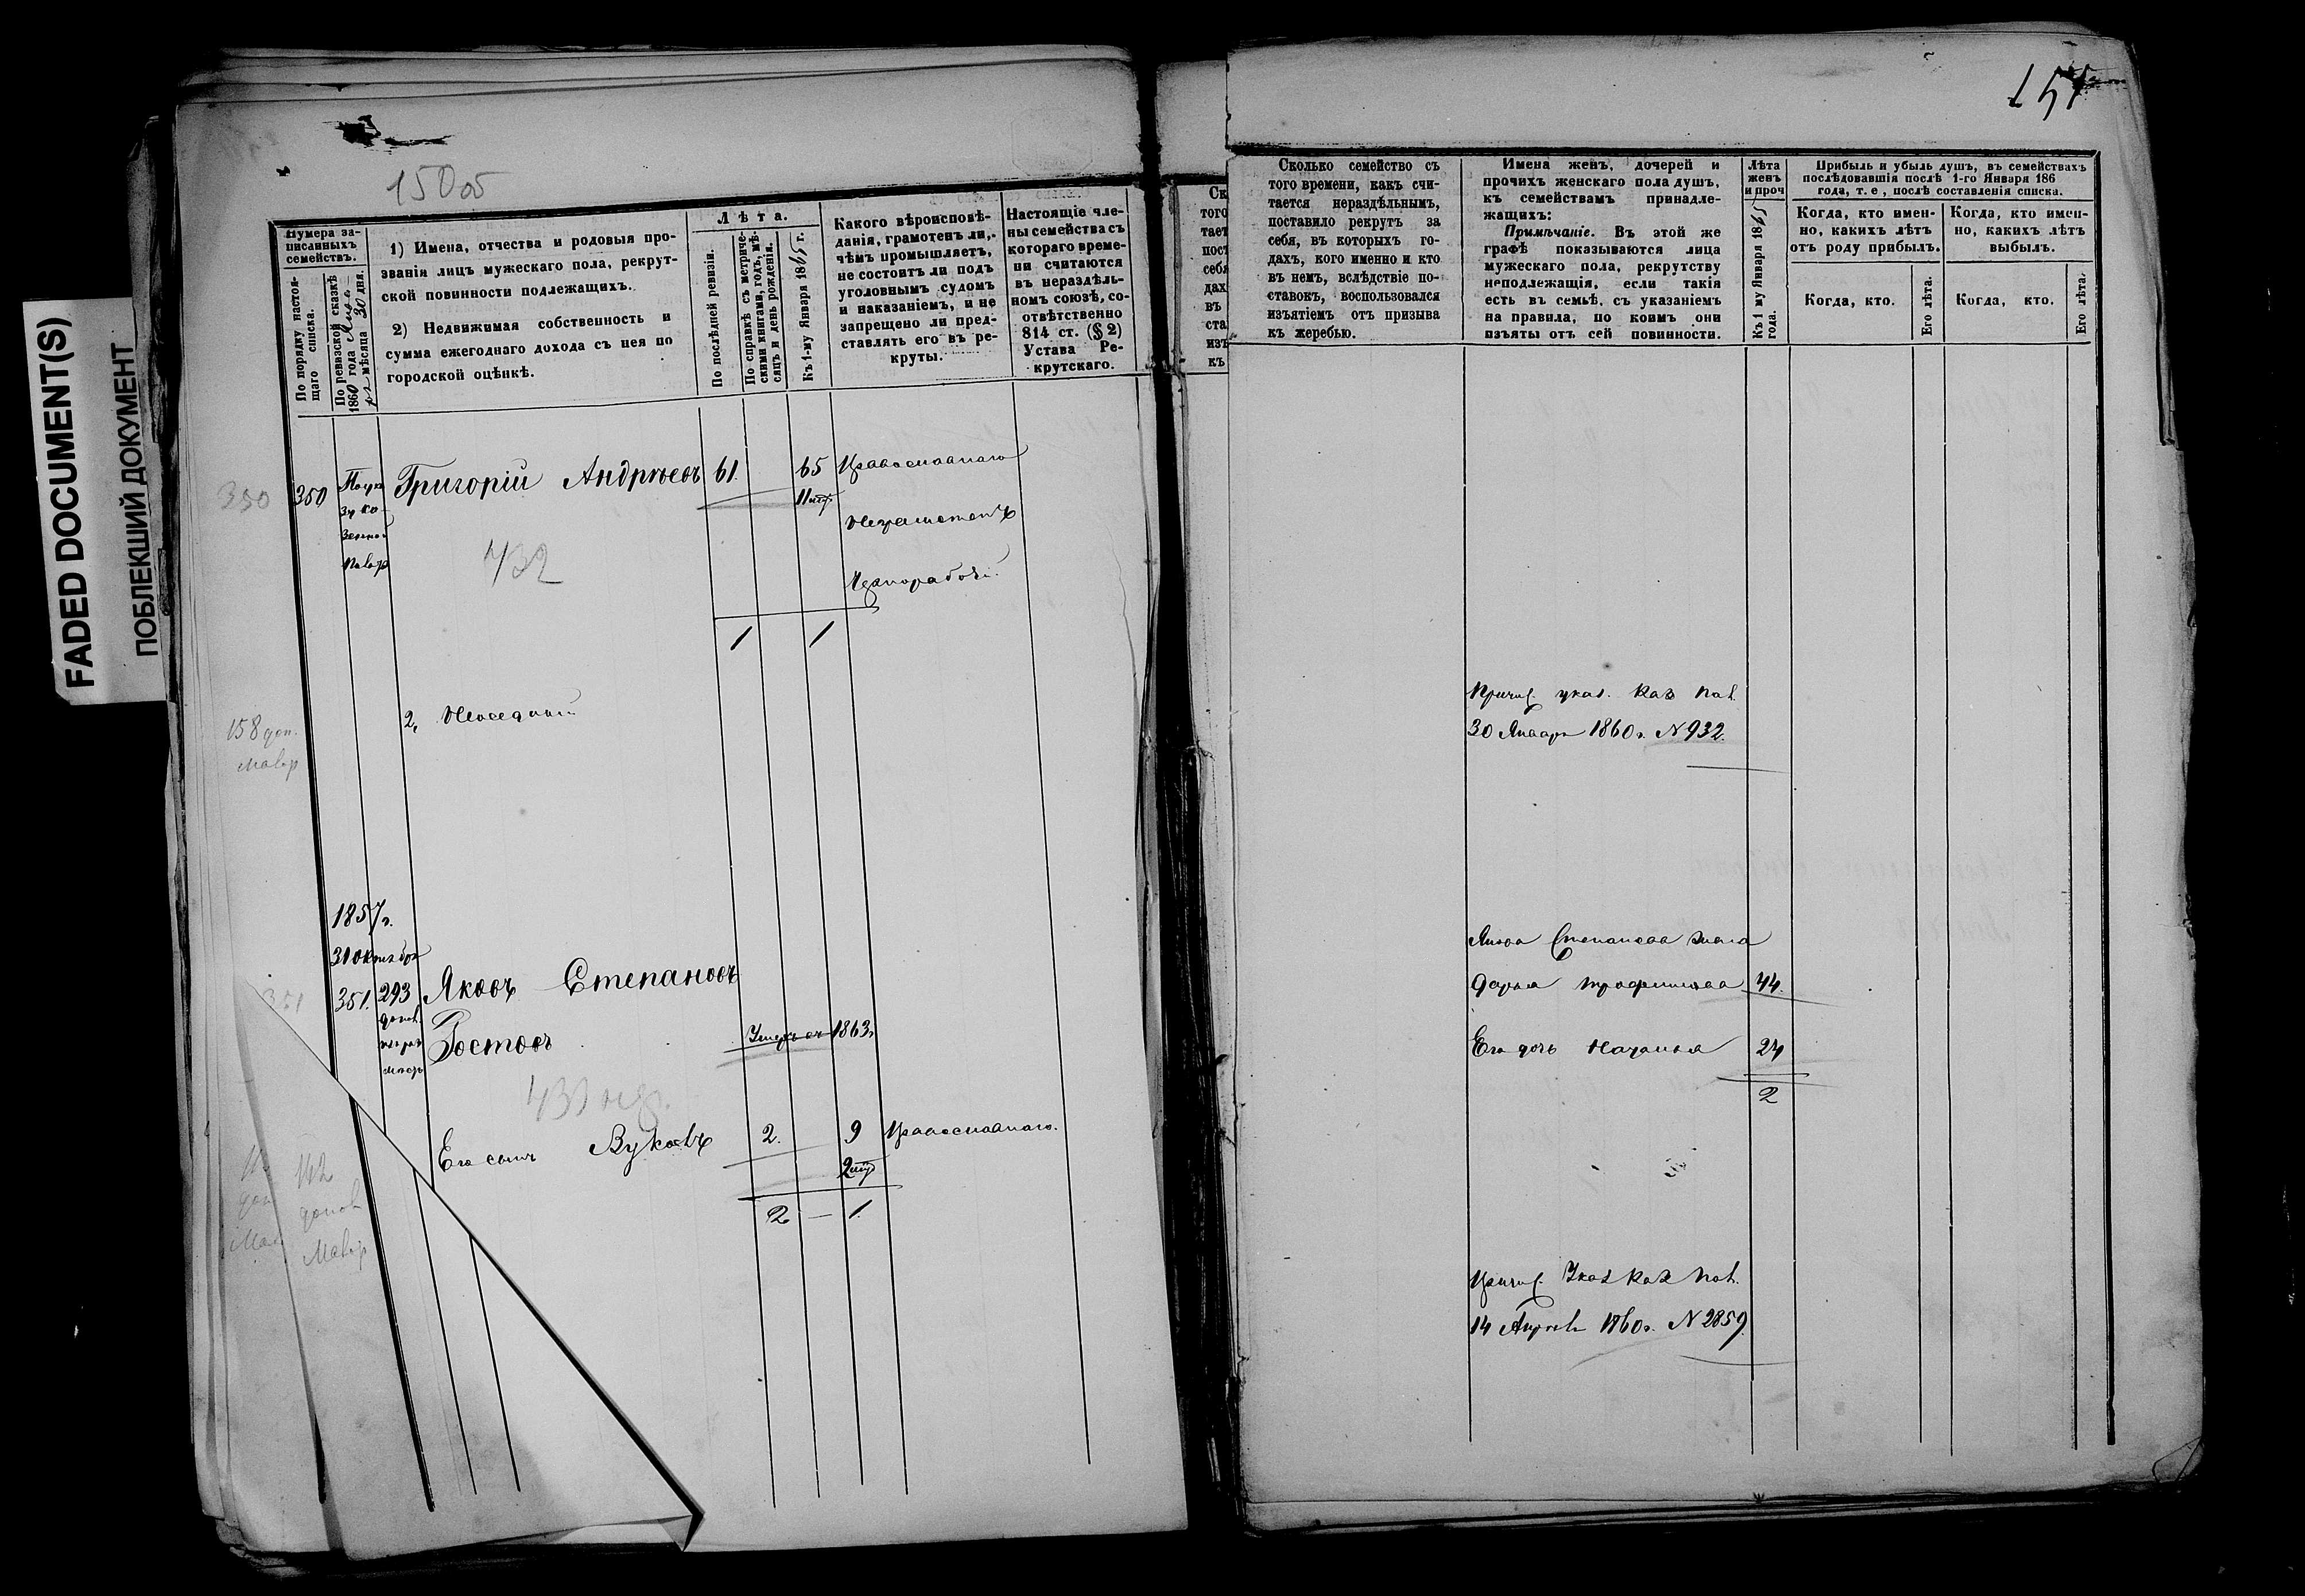 FADED DOCUMENT(S)
ПОБЛЕКШИЙ ДОКУМЕНТ
150об
151
Нумера за-
писанныхъ
семействъ.
По порядку настоя-
щаго списка.
По ревизской сказкѣ
1860 года
мѣсяца 30 дня.
1) Имена, отчества и родовыя про-
званія лицъ мужескаго пола, рекрут-
ской повинности подлежащихъ.
2) Недвижимая собственность и
сумма ежегоднаго дохода съ нея по
городской оцѣнкѣ.
Лѣта.
По послѣдней ревизіи.
По справкѣ съ метриче-
скими книгами, годъ, мѣ-
сяцъ и день рожденія.
Къ 1-му Января 1865 г.
Какого вѣроисповѣ-
данія, грамотенъ ли,
чѣмъ промышляетъ,
не состоитъ ли подъ
уголовнымъ судомъ
и наказаніемъ, и не
запрещено ли пред-
ставлять его въ ре-
круты.
Настоящіе чле-
ны семейства съ
котораго време-
ни считаются
въ нераздѣль-
номъ союзѣ, со-
отвѣтственно
814 ст. (§ 2)
Устава Ре-
крутскаго.
Ск
того
тает
пост
себя
дах
въ
ста
изъ
къ
Сколько семейство съ
того времени, какъ счи-
тается нераздѣльнымъ,
поставило рекрутъ за
себя, въ которыхъ го-
дахъ, кого именно и кто
въ немъ, вслѣдствіе по-
ставокъ, воспользовался
изъятіемъ отъ призыва
къ жеребью.
Имена женъ, дочерей и
прочихъ женскаго пола душъ,
къ семействамъ принадле-
жащихъ:
Примѣчаніе. Въ этой же
графѣ показываются лица
мужескаго пола, рекрутству
неподлежащія, если такія
есть въ семьѣ, съ указаніемъ
на правила, по коимъ они
изъяты отъ сей повинности.
Лѣта
женъ
и проч
Къ 1 му Января 1865
года.
Прибыль и убыль душъ, въ семействахъ
послѣдовавшія послѣ 1-го Января 186
года, т. е, послѣ составленія списка.
Когда, кто имен-
но, какихъ лѣтъ
отъ роду прибылъ.
Когда, кто имен-
но, какихъ лѣтъ
выбылъ.
Когда, кто.
Его лѣта.
Когда, кто.
Его лѣта.
350 350 Григорій Андреевъ 61. 65 Православнаго
Неграмотенъ
432
Чернорабочій.
1 1
2,
158 доп.
Причис. указ. Каз. Пал.
30 Января 1860 г. № 932.
1857 г.
31 октября
351 351. 293 Яковъ Степановъ
Ростовъ Умеръ въ 1863 г.
Его сынъ Вуколъ 2. 9 Православнаго.
2 — 1.
142
Якова Степанова жена
Дарья Трофимова 44.
Его дочь Наталья 24
2
Причис. Указ. Каз. Пал.
14 Апрѣля 1860 г. № 2859.